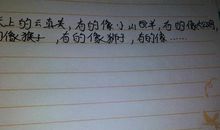 天上的云真美,有的像小山羊,有的像
的像猴子,有的像狮子,有的像……